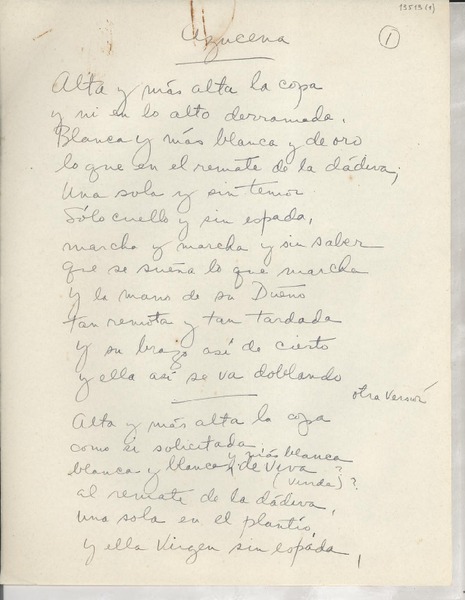 13513(1)
Azucena
1
Alta y más alta la copa
y ni en lo alto derramada.
Blanca y más blanca y de oro
lo que en el remate de la dádiva;
Una sola y sin temor
Sólo cuello y sin espada,
marcha y marcha y sin saber
que se sueña lo que marcha
y la mano de su Dueño
tan remota y tan tardada
y su brazo así de cierto
y ella así se va doblando
otra versión
Alta y más alta la copa
como si solicitada
blanca y blanca y más blanca de Viva ?
(viuda)?
al remate de la dádiva,
una sola en el plantío,
y ella Virgen sin espada,